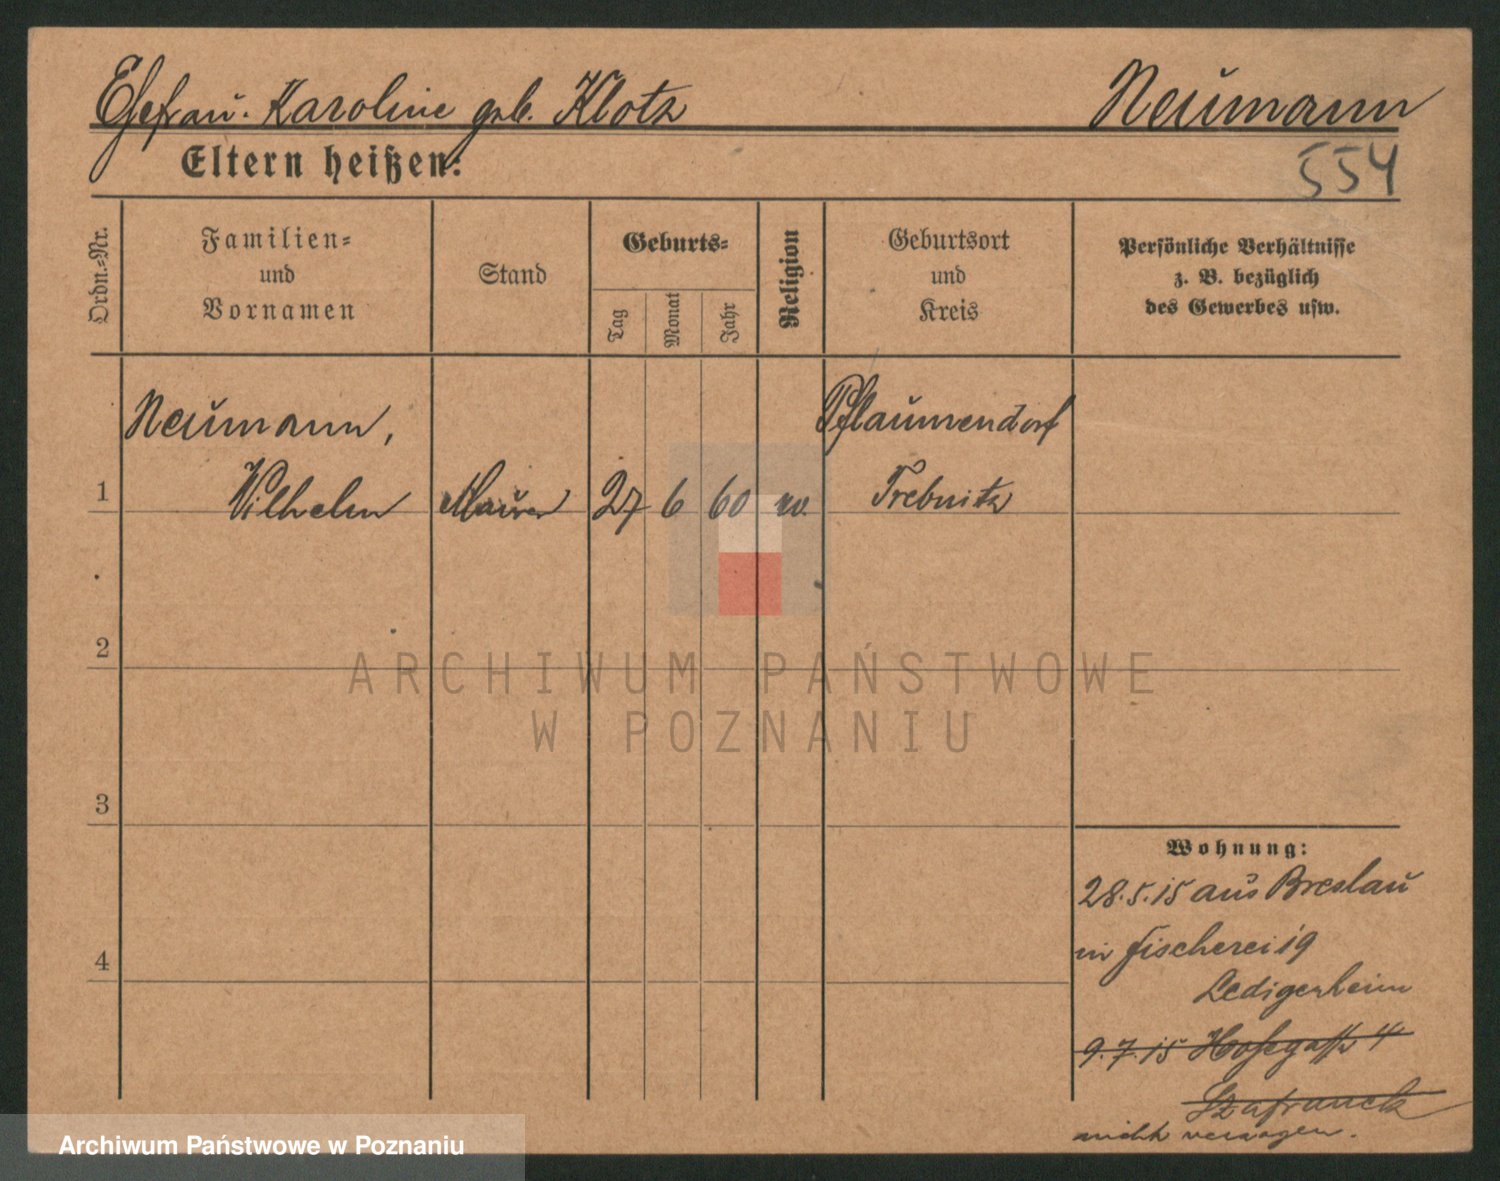 Ehefrau. Karoline geb. Klotz Neumann
Eltern heißen:
554
Ordn.=Nr.
Familien=
und
Vornamen
Stand
Geburts=
Tag
Monat
Jahr
Religion
Geburtsort
und
Kreis
Persönliche Verhältnisse
z. B. bezüglich
des Gewerbes usw.
Neumann, Pflaumendorf
1 Wilhelm Maurer 27 6 60 ev. Trebnitz
2
3
4
ARCHIWUM PAŃSTWOWE
W POZNANIU
Wohnung:
28.5.15 aus Breslau
in Fischerei 19
Ledigenheim
9.7.15 4
nicht
Archiwum Państwowe w Poznaniu